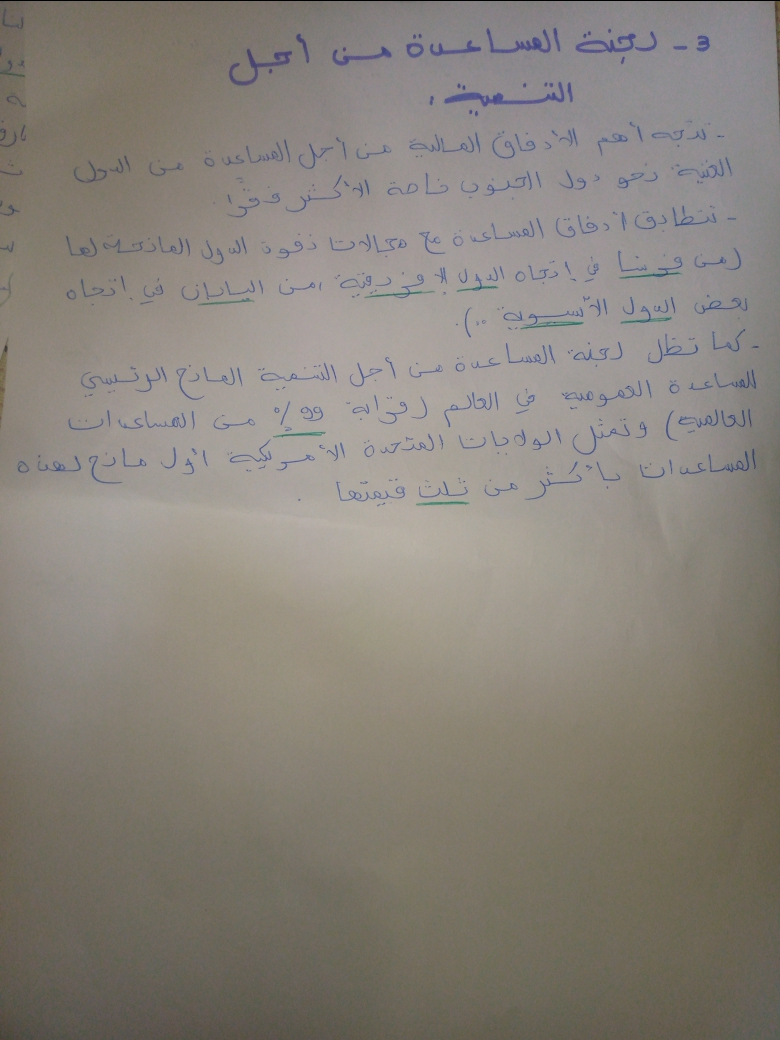 3 - لجنة المساعدة من أجل
التنمية :
- تتجه أهم الأدفاق المالية من أجل المساعدة من الدول
الغنية نحو دول الجنوب خاصة الأكثر فقرا
- تتطابق أدفاق المساعدة مع مجالات نفوذ الدول المانحة لها
(من فرنسا في اتجاه الدول الإفريقية ، من اليابان في اتجاه
بعض الدول الآسيوية ..).
- كما تظل لجنة المساعدة من أجل التنمية المانح الرئيسي
للمساعدة العمومية في العالم (قرابة 99 % من المساعدات
العالمية) وتمثل الولايات المتحدة الأمريكية أول مانح لهذه
المساعدات بأكثر من ثلث قيمتها .